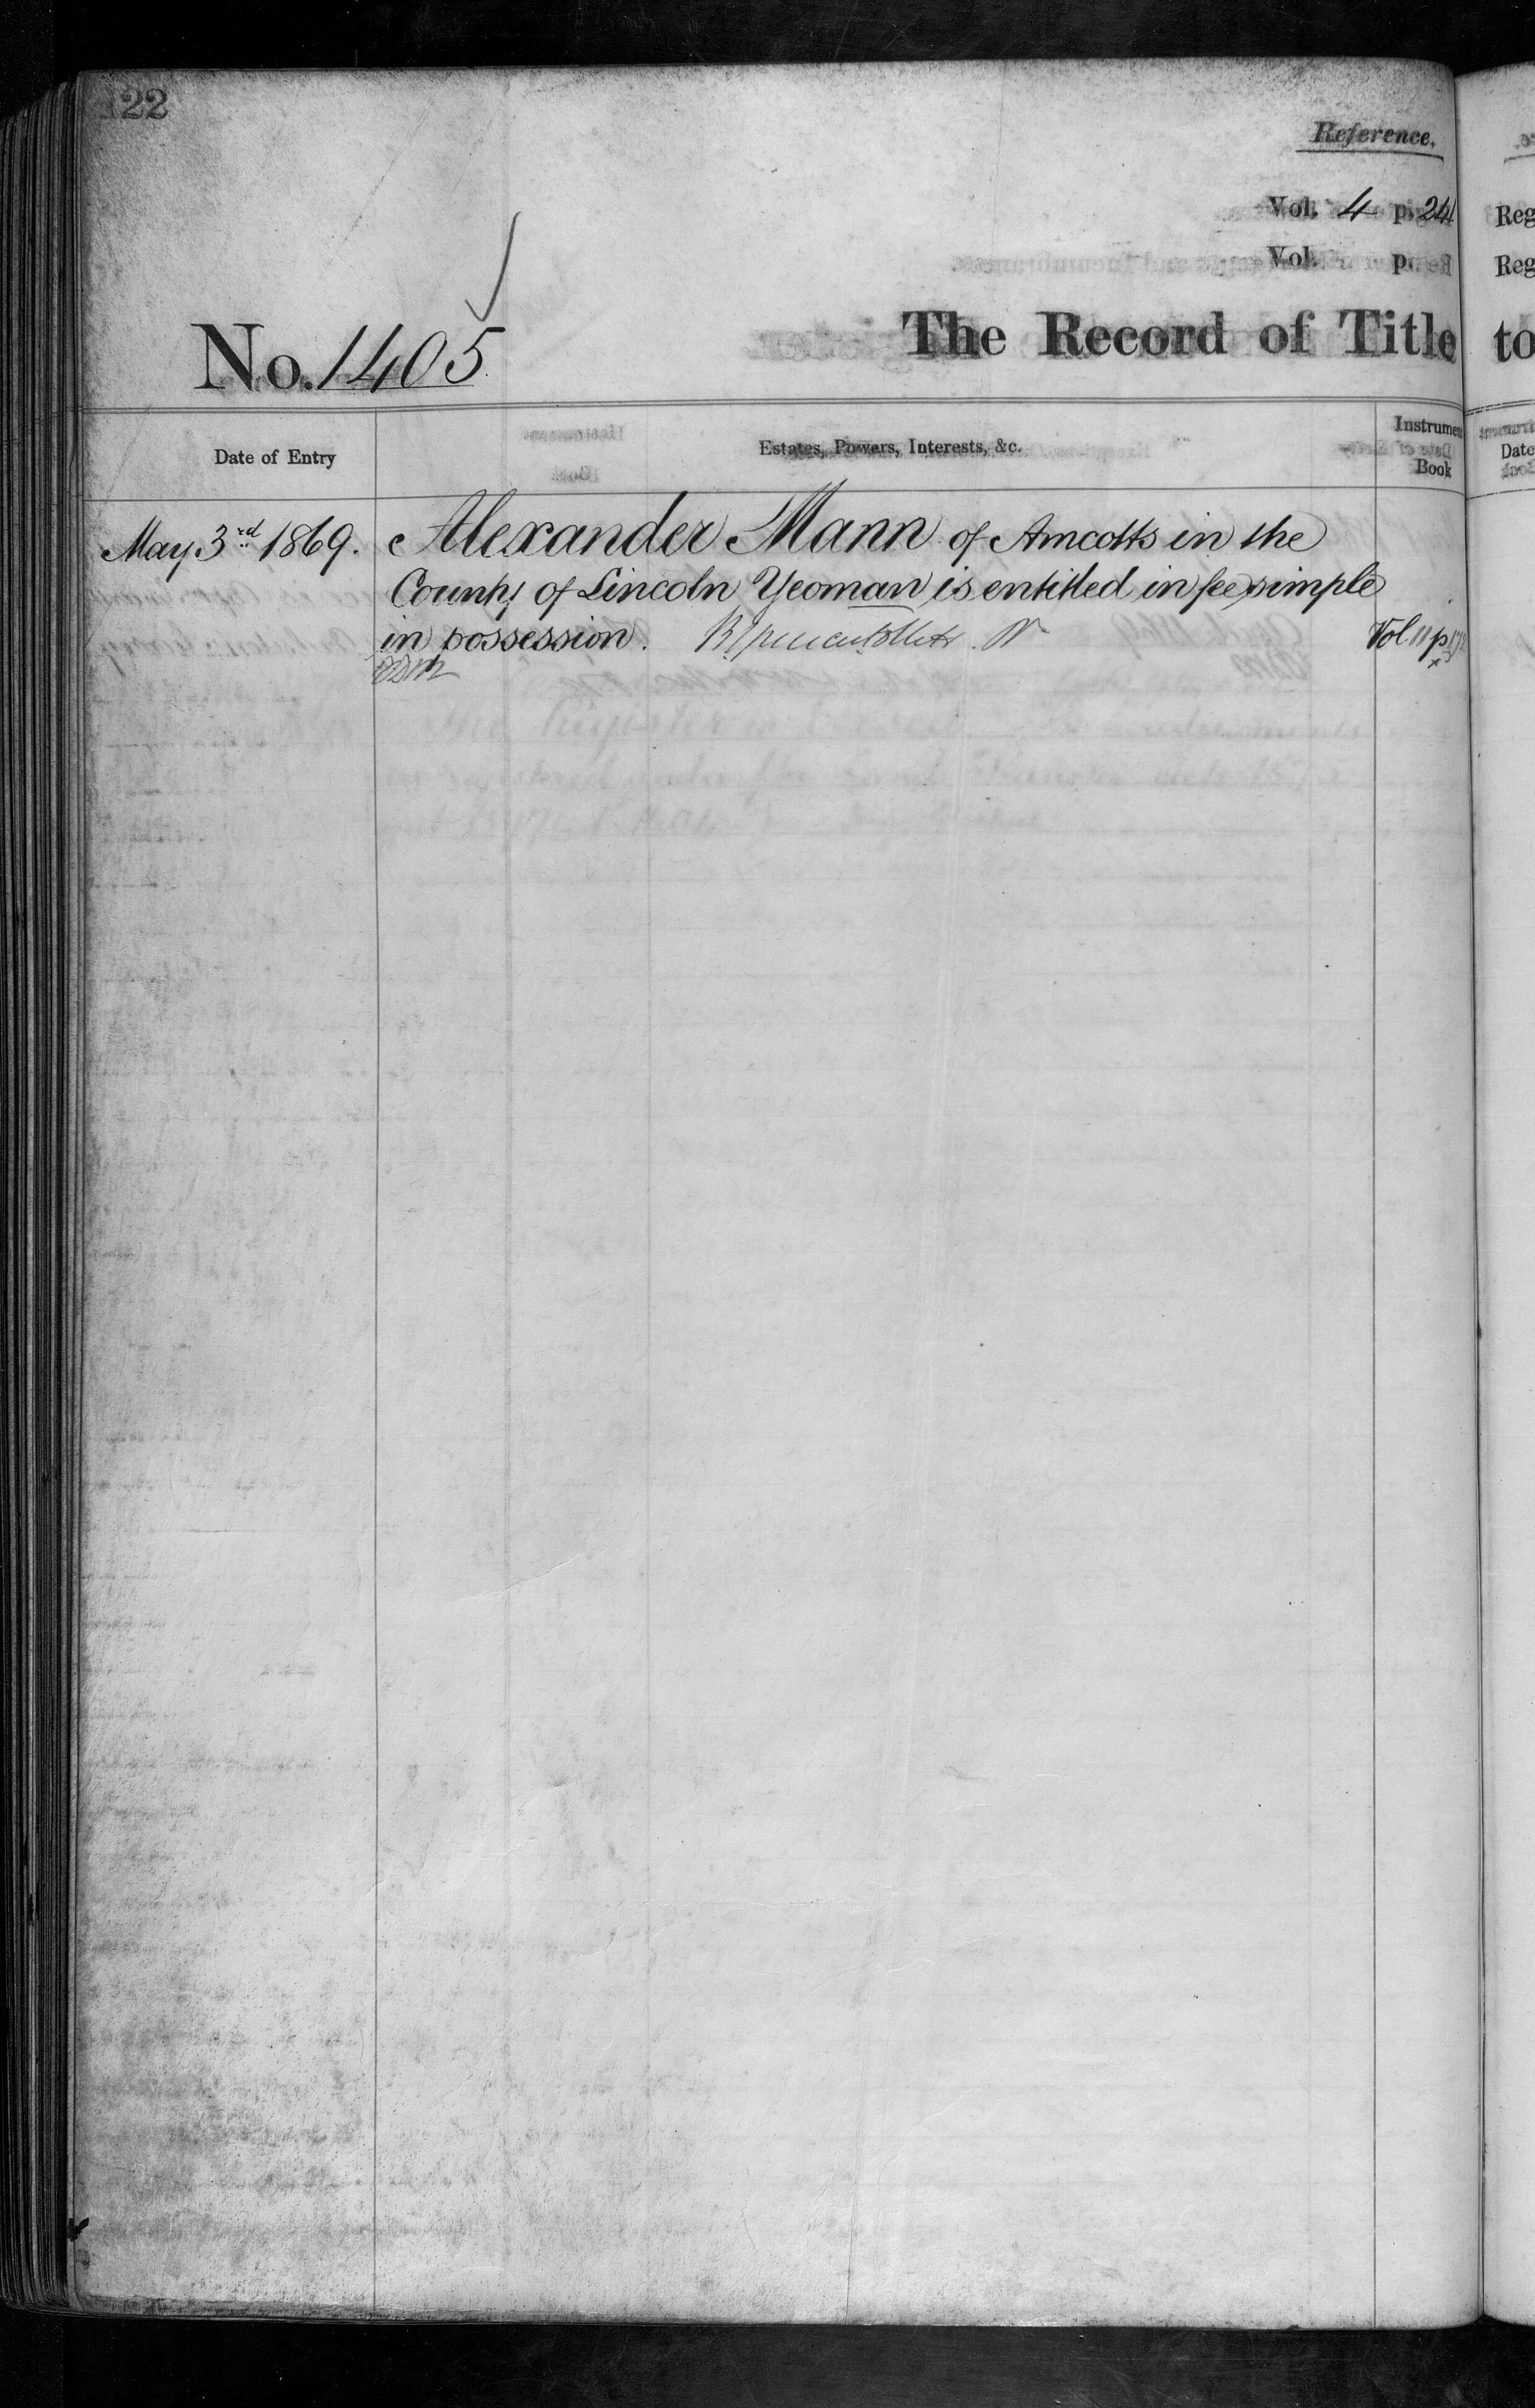 122
Reference.
Vol. 4 p. 241
Vol. p.
No. 1405
The Record of Title
Date of Entry
Estates, Powers, Interests, &c.
Instrumen
Book
May 3rd 1869.
Alexander Mann of Amcotts in the
County of Lincoln Yeoman is entitled in fee simple
in possession.
Vol. 11 p.
Reg
Reg
to
Date